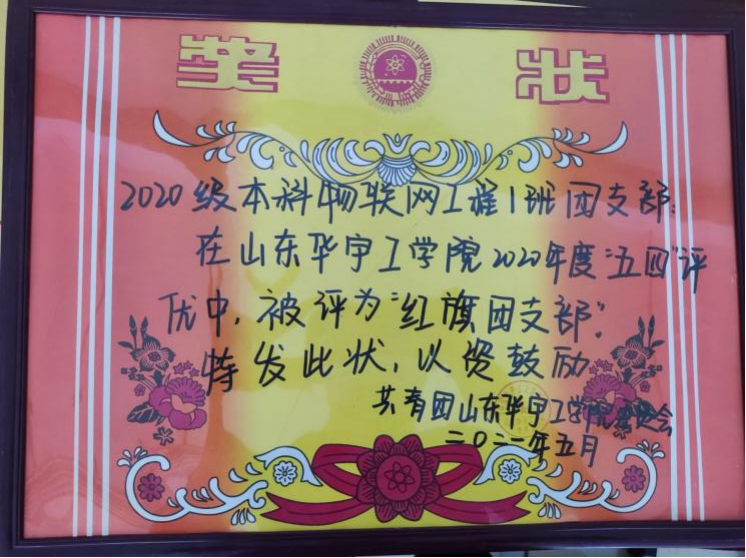 奖状
2020级本科物联网工程1班团支部:
在山东华宇工学院2020年度"五四"评
优中,被评为"红旗团支部".
特发此状,以资鼓励
共青团山东华宇工学院委员会
二〇二一年五月